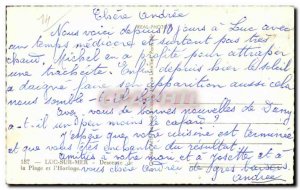 Chère Andrée
Nous voici depuis 10 jours à Luc avec
un temps médiocre et surtout pas très
chaud. Michel en a profité pour attraper
une trachéite. Enfin depuis hier le soleil
a daigné faire son apparition aussi cela
nous semble
vous de bonnes nouvelles de Dany
a-t-il un peu moins le cafard ?
J'espère que votre cuisine est terminée
et que vous êtes enchantée du résultat
amitiés à votre mari et à Josette et à
vous chère Andrée de gros baisers
187 - LUC-SUR-MER - Descente
la Plage et l'Horloge